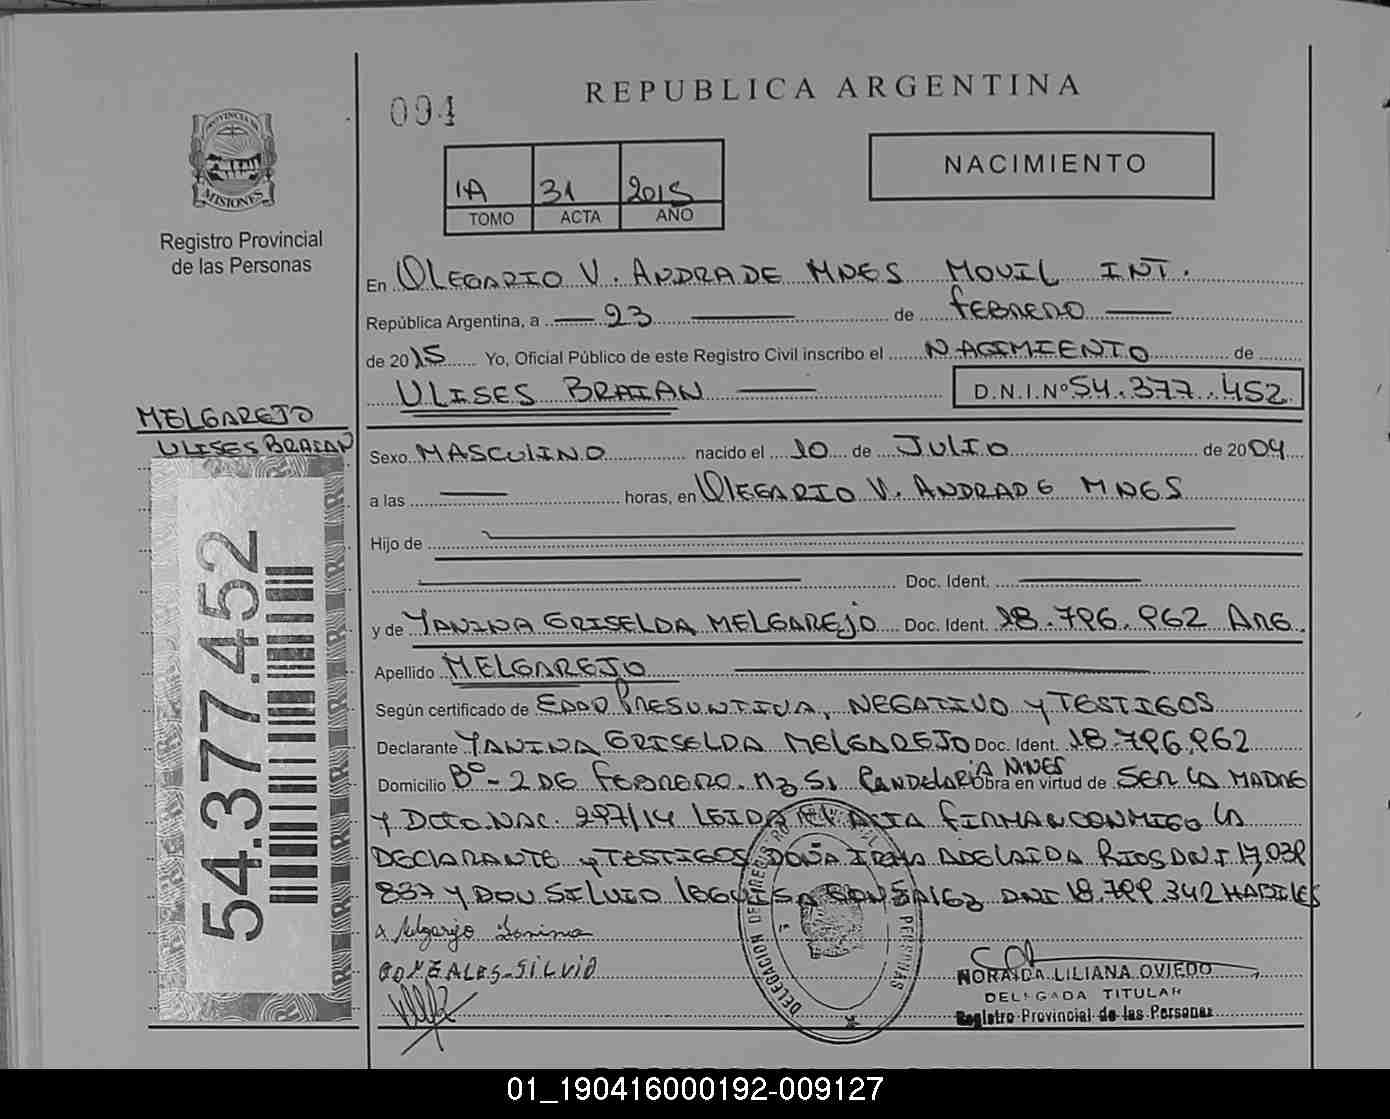 094
REPUBLICA ARGENTINA
NACIMIENTO
PROVINCIA DE
MISIONES
Registro Provincial
de las Personas
1A 31 2015
TOMO ACTA AÑO
En OLEGARIO V. ANDRADE MNES MOVIL INT.
República Argentina, a — 23 — de FEBRERO —
de 2015 Yo, Oficial Público de este Registro Civil inscribo el NACIMIENTO de
ULISES BRAIAN — D.N.I.Nº 54.377.452
MELGAREJO
ULISES BRAIAN
Sexo MASCULINO nacido el 10 de JULIO de 2004
a las — horas, en OLEGARIO V. ANDRADE MNES
Hijo de —
— Doc. Ident. —
y de YANINA GRISELDA MELGAREJO Doc. Ident. 18.796.962 ARG.
Apellido MELGAREJO —
Según certificado de EDAD PRESUNTIVA, NEGATIVO Y TESTIGOS
Declarante YANINA GRISELDA MELGAREJO Doc. Ident. 18.796.962
Domicilio Bº - 2 DE FEBRERO. Mz 51 CANDELARIA MNES Obra en virtud de SER LA MADRE
Y DCTO.NAC. 297/14 LEIDA EL ACTA FIRMAN CONMIGO LA
DECLARANTE Y TESTIGOS DOÑA IRMA ADELAIDA RIOS DNI 17.039
837 Y DON SILVIO GONZALEZ DNI 18.799.342 HABILES
Melgarejo Yanina
GONZALES-SILVIO
NORAIDA LILIANA OVIEDO
DELEGADA TITULAR
Registro Provincial de las Personas
54.377.452
01_190416000192-009127